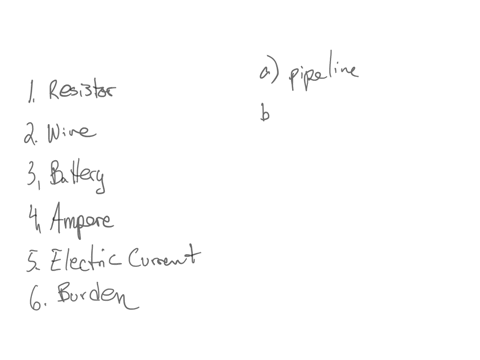 1. Resistor
2. Wire
3, Battery
4, Ampere
5. Electric Current
6. Burden
a) pipeline
b